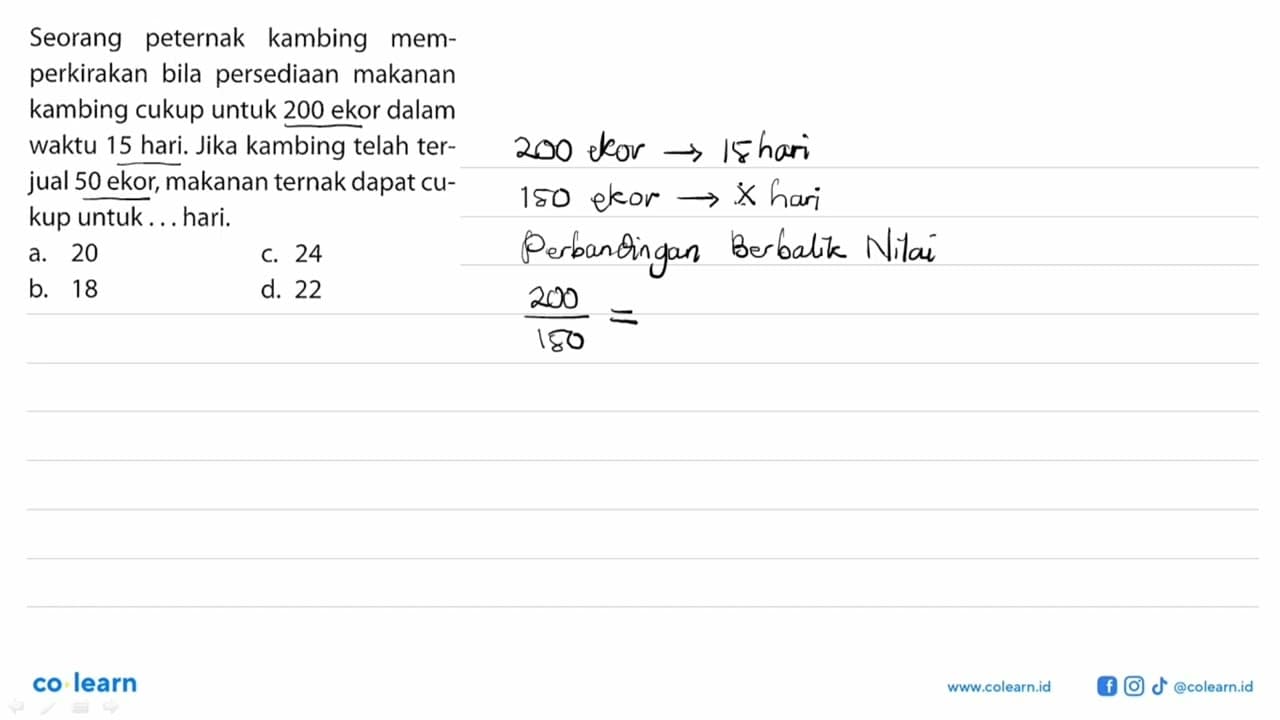 Seorang peternak kambing mem-
perkirakan bila persediaan makanan
kambing cukup untuk 200 ekor dalam
waktu 15 hari. Jika kambing telah ter-
jual 50 ekor, makanan ternak dapat cu-
kup untuk . . . hari.
a. 20 c. 24
b. 18 d. 22
200 ekor → 15 hari
150 ekor → x hari
Perbandingan Berbalik Nilai
200
150
=
co learn
www.colearn.id
@colearn.id